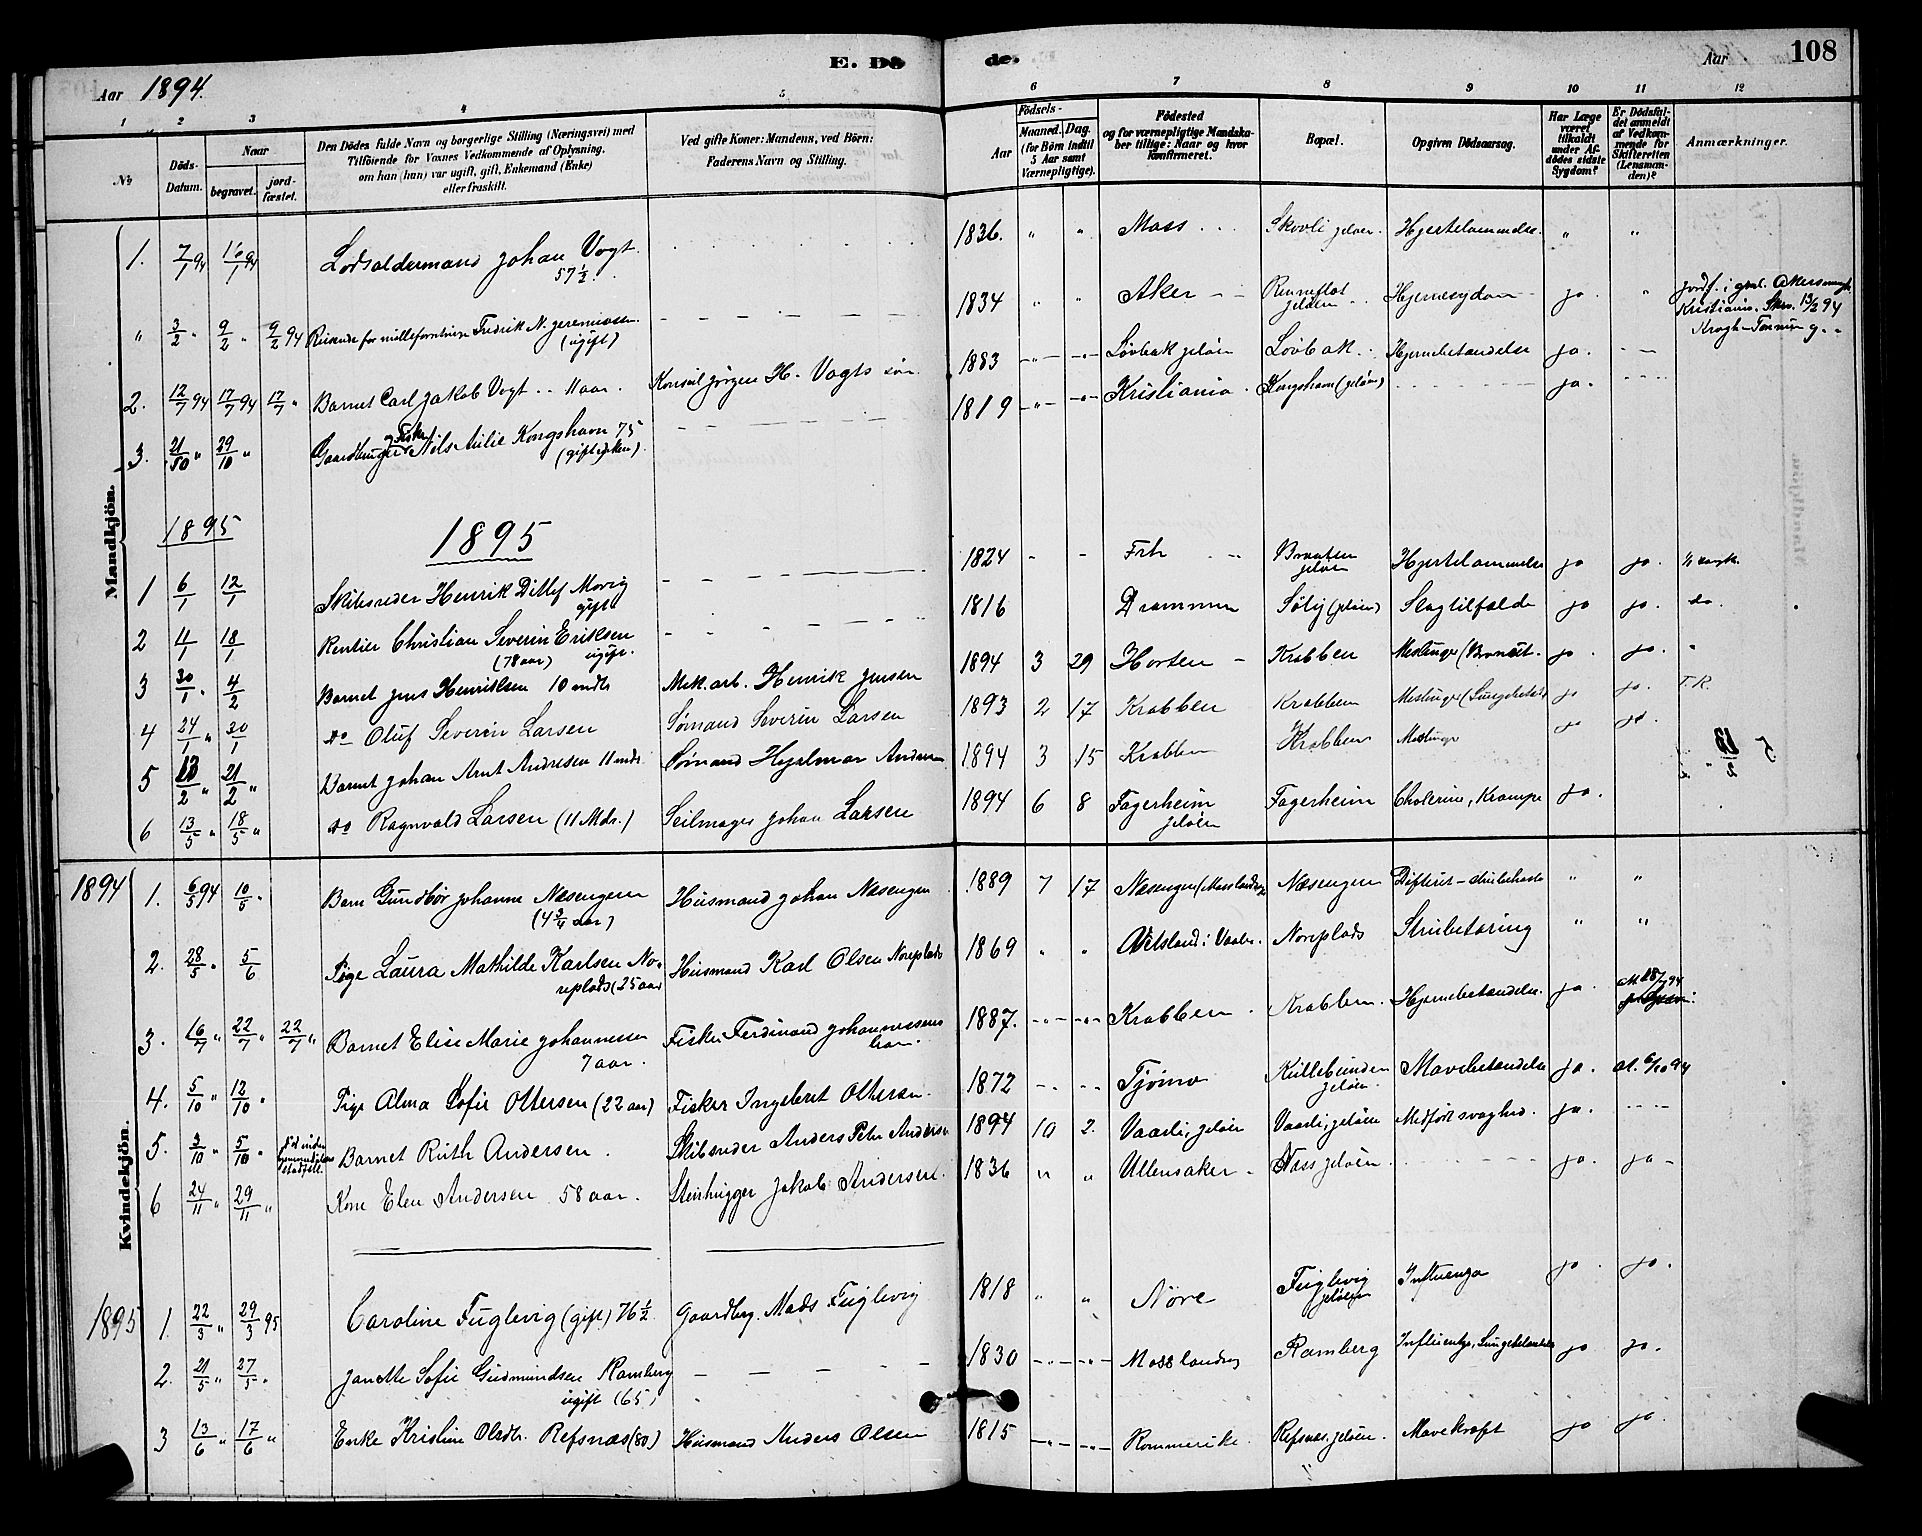 E. Dø de.
Aar 1894. Aar 108
1 2 3 4 5 6 7 8 9 10 11 12
No Døds-Datum. Naar begravet. jord-fæstet. Den Dødes fulde Navn og borgerlige Stilling (Næringsvei) med Tilføiende for Voxnes Vedkommende af Oplysning, om han (hun) var ugift, gift, Enkemand (Enke) eller fraskilt. Ved gifte Koner: Mandens, ved Børn: Faderens Navn og Stilling. Fødsels- Aar Maaned. Dag. (for Børn indtil 5 Aar samt Værnepligtige). Fødested og for værnepligtige Mandskaber tillige: Naar og hvor konfirmeret. Bopæl. Opgiven Dødsaarsag. Har Læge været tilkaldt under Afdødes sidste Sygdom? Er Dødsfaldet anmeldt af Vedkommende for Skifteretten (Lensmanden)? Anmærkninger.
Mandkjön.
1. 7/1 94 16/1 94 Lodsoldermand Johan Vogt. 57 1/2 1836. " " Moss Skovli Jeløen. Hjertelammelse. " "
" 3/2 " 9/2 " 9/2 94 Reisende for mølleforretninger Fredrik N. Jeremiassen (ugift) 1834 " " Aker Renneflot Jeløen Hjernesygdom ja. " jordf. i gml. Akers Kristiania. Skr. 13/2 94 Krogh-Tonning
2. 12/7 94 17/7 94 17/7 " Barnet Carl Jakob Vogt 11 aar. Konsul Jørgen H. Vogts søn 1883 Løvbak Jeløen Løvbak Hjernebetændelse ja.
3. 21/10 " 29/10 " Gaardbruger og Fisker Nils Kongshavn 75 (gift) 1819 Kristiania Kongshavn (Jeløen) ja.
1895 1895
1 6/1 12/1 Skibsreder Henrik Ditlef Movig gift 1824 Braaten Jeløen Hjertelammelse ja ja.
2 4/1 18/1 Rentier Christian Severin Eriksen (78 aar) ugift. 1816 Drammen Solly (Jeløen) Slagtilfælde ja ja. do.
3 30/1 " 4/2 Barnet Jens Henriksen 10 mdr Mek. arb. Henrik Jensen 1894 3 29 Horten Krabben Meslinger ja. ja. "
4 24/1 " 30/1 do Oluf Severin Larsen Sømand Severin Larsen 1893 2 17 Krabben Krabben Meslinger ja ja. T.R.
5 13/2 " 21/2 " Barnet Johan Arnt Andresen 11 mdr. Sømand Hjalmar Andresen 1894 3 15 Krabben Krabben Meslinger ja ja.
6 13/5 " 18/5 " do Ragnvald Larsen (11 Mdr.) Seilmager Johan Larsen 1894 6 8 Fagerheim Jeløen Fagerheim Cholerine, Krampe ja.
Kvindekjön.
1894 1. 6/5 94 10/5 " Barn Gundbør Johanne Næsengen (4 3/4 aar) Husmand Johan Næsengen 1889 7 17 Næsengen (Mosslandsog Næsengen Difterit - " "
2. 28/5 " 5/6 Pige Laura Mathilde Karlsen Noreplads (25 aar) Husmand Karl Olsen Noreplads 1869 " " i Vaaler. Noreplads Strubetæring " "
3. 16/7 " 22/7 " 22/7 " Barnet Elise Marie Johannessen 7 aar. Fisker Ferdinand Johannessens barn. 1887. Krabben Krabben Hjernebetændelse. ja. 28/7 94
4. 5/10 " 12/10 " Pige Alma Sofie Ottersen (22 aar) Fisker Ingebret Ottersen 1872 Tjømø Kullebunden Jeløen Mavebetændelse ja. at. 6/10 94
5. 3/10 " 5/10 " Barnet Ruth Andersen. Skibsreder Anders Peter Andersen 1894 10 2. Vaarli, Jeløen Vaarli, Jeløen Medfødt svaghed. ja.
6 24/11 " 29/11 " Kone Elen Andersen 58 aar. Stenhugger Jakob Andersen. 1836 " " Ullensaker Næss Jeløen ja. ja
1895 1. 22/3 " 29/3 95 Caroline Fuglevig (gift) 76 1/2 Gaardbrg. Mads Fuglevig 1818 " " Nøre Fuglevig Jeløen Influenza ja. ja.
2. 21/5 " 27/5 " Janette Sofie Gudmundsen Ramberg ugift (65) 1830 Mosslandsog Ramberg Influentza, Lungebetændelse ja ja.
3 13/6 " 17/6 " Enke Kristine Olsdtr. Refsnæs (80) Husmand Anders Olsen 1815 Rommerike Refsnæs, Jeløen. Mavekræft ja ja.